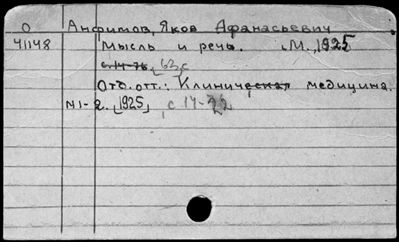 О Анфимов, Яков Афанасьевич
41148 Мысль и речь. М., 1925
с. 14-76, 63 с
Отд. отт.: Клиническая медицина.
N 1-2. [1925], с 14-